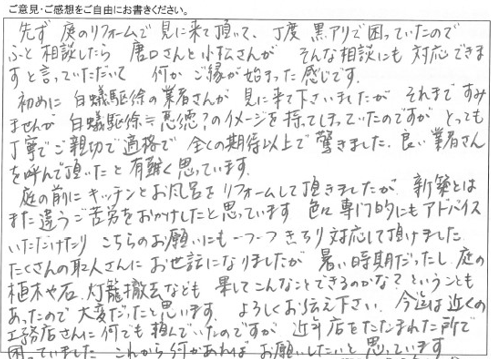 ご意見・ご感想をご自由にお書きください。
先ず 庭のリフォームで見に来て頂いて、丁度 黒アリで困っていたので
ふと相談したら 唐口さんと小松さんが そんな相談にも対応できま
すと言っていただいて 何か ご縁が始まった感じです。
初めに 白蟻駆徐の業者さんが 見に来て下さいましたが それまですみ
ませんが 白蟻駆徐≒悪徳?のイメージを持ってしまっていたのですが とっても
丁寧でご親切で適格で 全くの期待以上で驚きました。良い業者さん
を呼んで頂いたと有難く思っています。
庭の前にキッチンとお風呂をリフォームして頂きましたが 新築とは
また違うご苦労をおかけしたと思っています 色々専門的にもアドバイス
いただけたり こちらのお願いにも一つ一つきちり対応して頂けました
たくさんの職人さんにお世話になりましたが 暑い時期だったし 庭の
植木や石、灯籠撤去なども 果してこんなことできるのかな?ということも
あったので大変だったと思います。 よろしくお伝え下さい。今迄は近くの
工務店さんに何でも頼んでいたのですが 近年店をたたまれた所で
困っていました これから何かあれば お願いしたいと思っています